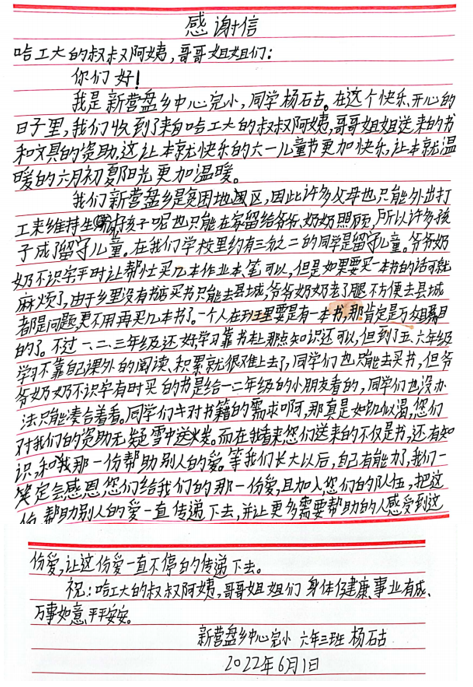 感谢信
哈工大的叔叔阿姨，哥哥姐姐们：
你们好！
我是新营盘乡中心完小，同学杨石古。在这个快乐、开心的
日子里，我们收到了来自哈工大的叔叔阿姨，哥哥姐姐送来的书
和文具的资助，这让本就快乐的六一儿童节更加快乐，让本就温
暖的六月初夏阳光更加温暖。
我们新营盘乡是贫困地区，因此许多父母也只能外出打
工来维持生孩子呢也只能在家留给爷爷、奶奶照顾，所以许多孩
子成了留守儿童，在我们学校里约有三分之二的同学是留守儿童。爷爷奶
奶不识字平时让帮忙买几本作业本、笔可以，但是如果要买一本书的话可就
麻烦了，由于乡里没有书店买书只能去县城，爷爷奶奶老了腿不方便去县城
都是问题更不用再买几本书了。一个人在班里要是有一本书，那肯定是万众瞩目
的了。不过一、二、三年级还好学习靠书上那点知识还可以，但到了五、六年级
学习不靠自己课外的阅读、积累就很难上去了，同学们也只能去买书，但爷
爷奶奶不识字有时买的书是给一二年级的小朋友看的，同学们也没办
法只能凑合着看。同学们牛对书籍的需求啊，那真是如饥似渴，您们
对我们的资助无疑雪中送炭。而在我看来您们送来的不仅是书，还有知
识，和那一份帮助别人的爱。等我们长大以后，自己有能力了，我们一
定会感恩您们给我们的那一份爱，且加入您们的队伍，把这
份，帮助别人的爱一直传递下去，并让更多需要帮助的人感受到这
份爱，让这份爱一直不停的传递下去。
祝：哈工大的叔叔阿姨，哥哥姐姐们身体健康、事业有成、
万事如意、平平安安。
新营盘乡中心完小 六年三班 杨石古
2022年6月1日